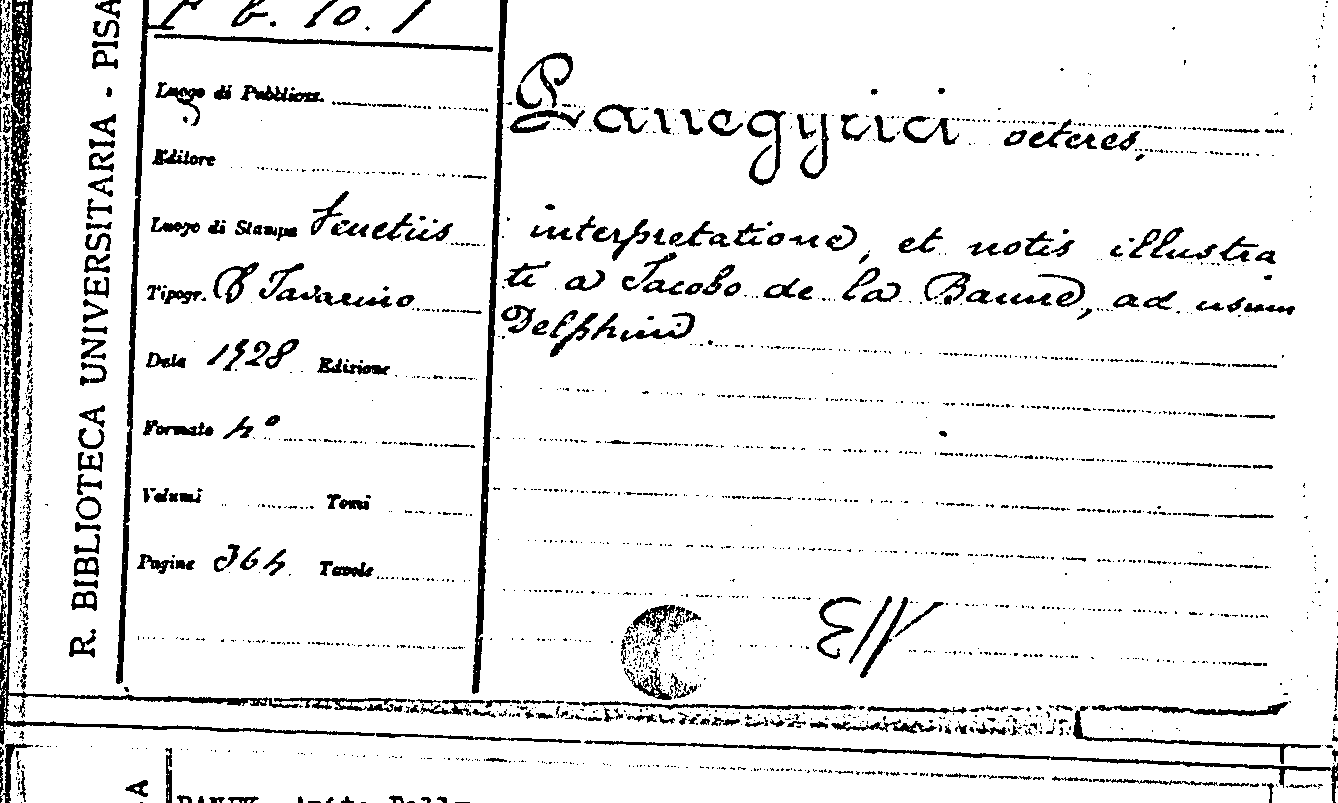 R. BIBLIOTECA UNIVERSITARIA - PISA
P b. 10. 1
Luogo di Pubblicaz.
Editore
Luogo di Stampa Venetiis
Tipogr. B Javarino
Data 1728 Edizione
Formato 4°
Volumi Tomi
Pagine 364 Tavole
Panegyrici veteres,
interpretatione, et notis illustra
ti a Jacobo de la Baune, ad usum
Delphini.